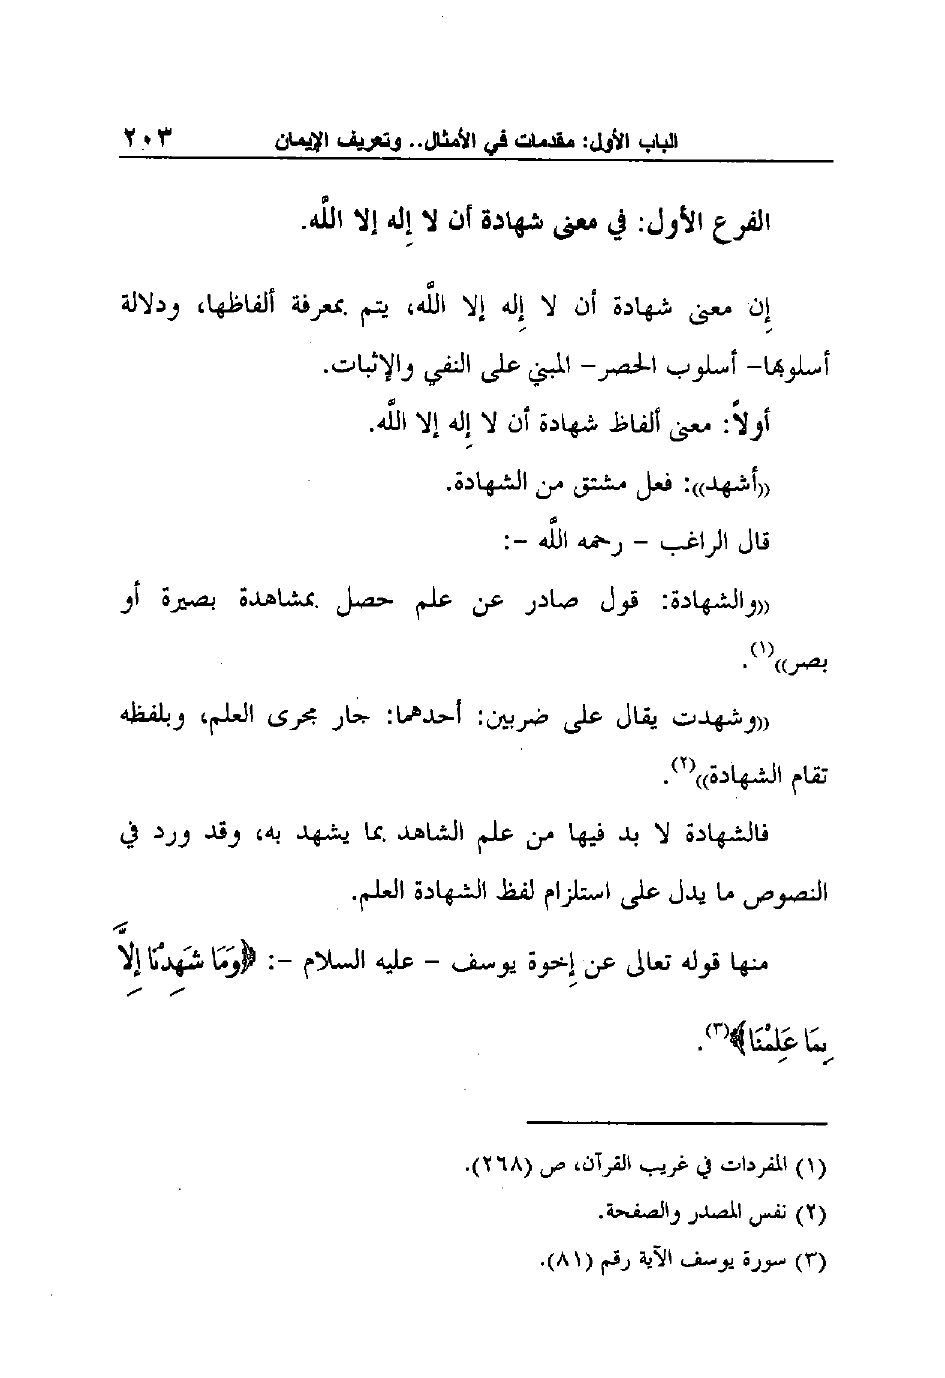 الباب الأول: مقدمات في الأمثال.. وتعريف الإيمان ٢٠٣
الفرع الأول: في معنى شهادة أن لا إله إلا اللَّه.
إن معنى شهادة أن لا إله إلا اللَّه، يتم بمعرفة ألفاظها، ودلالة
أسلوبها- أسلوب الحصر- المبني على النفي والإثبات.
أولاً: معنى ألفاظ شهادة أن لا إله إلا اللَّه.
((أشهد)): فعل مشتق من الشهادة.
قال الراغب - رحمه اللَّه -:
((والشهادة: قول صادر عن علم حصل بمشاهدة بصيرة أو
بصر))(١).
((وشهدت يقال على ضربين: أحدهما: جار مجرى العلم، وبلفظه
تقام الشهادة))(٢).
فالشهادة لا بد فيها من علم الشاهد بما يشهد به، وقد ورد في
النصوص ما يدل على استلزام لفظ الشهادة العلم.
منها قوله تعالى عن إخوة يوسف - عليه السلام -: ﴿وَمَا شَهِدْنَا إِلاَّ
بِمَا عَلِمْنَا﴾(٣).
(١) المفردات في غريب القرآن، ص (٢٦٨).
(٢) نفس المصدر والصفحة.
(٣) سورة يوسف الآية رقم (٨١).